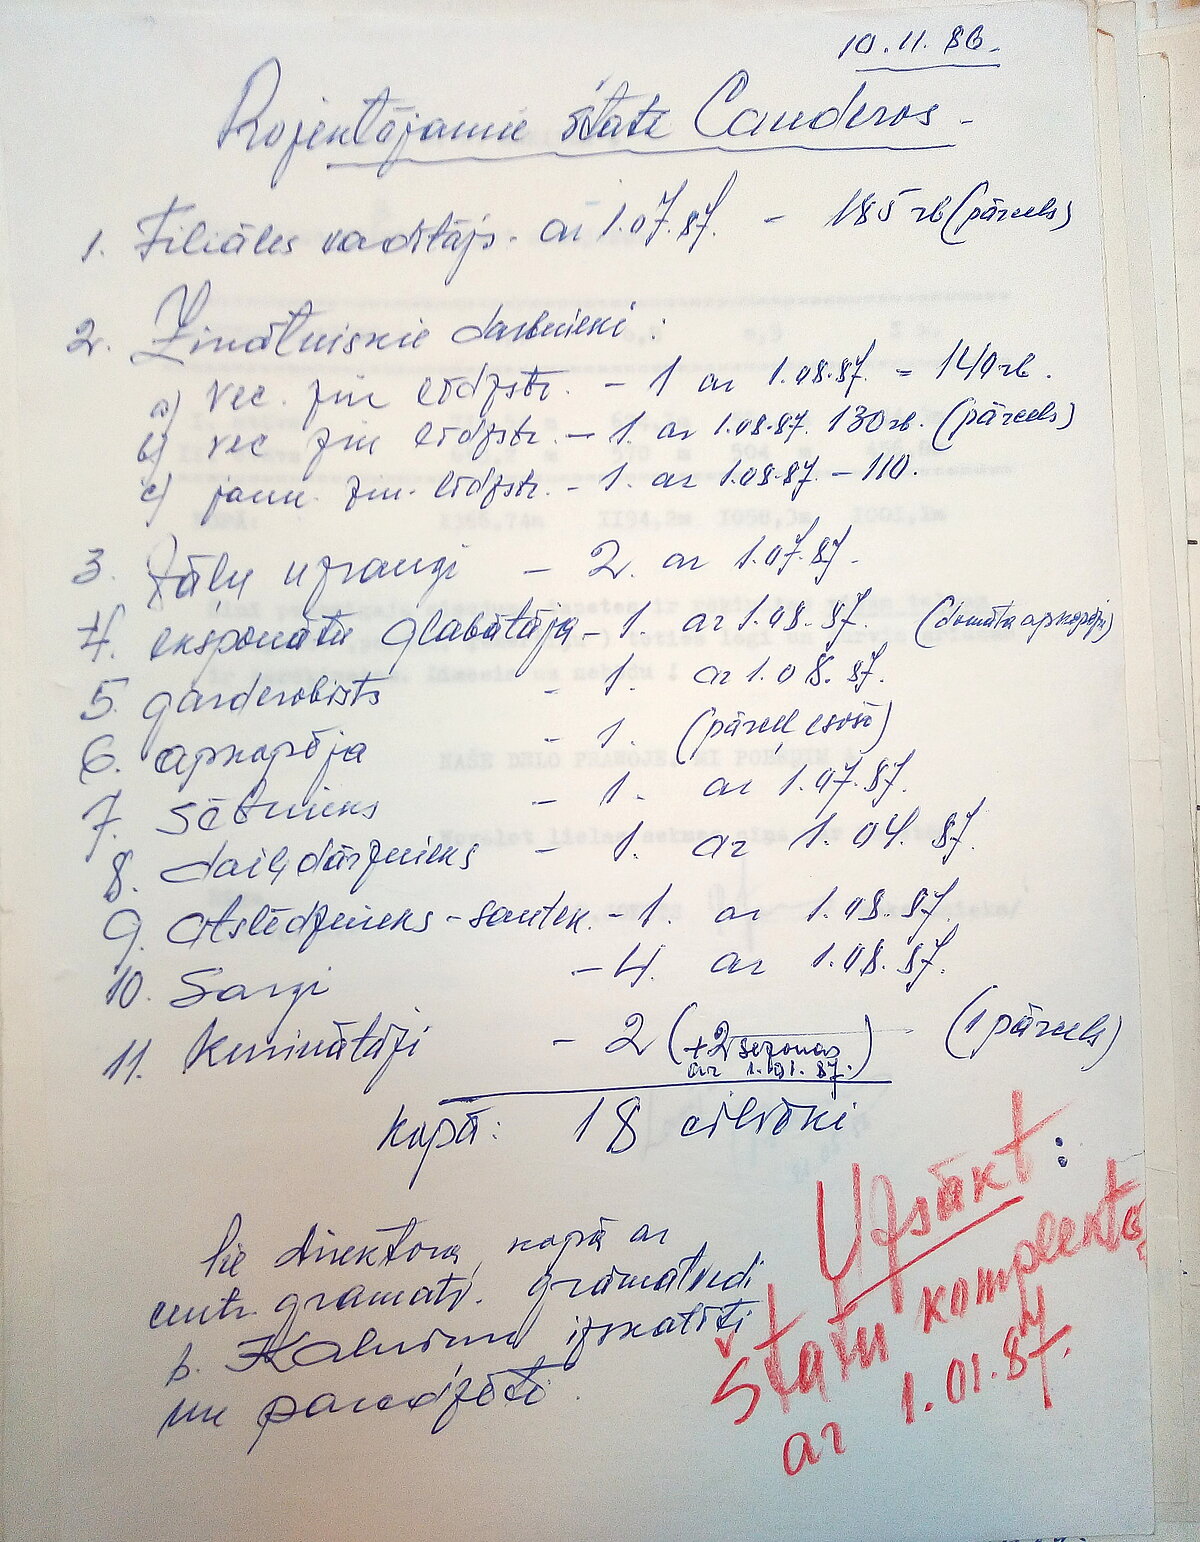 10.11.86.
Projektējamie štati Canderos -
1. Filiāles vadītājs - ar 1.07.87. - 185 rb (pārcels)
2. Zinātniskie darbinieki:
a) vec. zin līdzstr. - 1 ar 1.08.87. - 140 rb.
b) vec zin līdzstr. - 1. ar 1.08.87. 130 rb. (pārcels)
c) jaun. zin. līdzstr. - 1. ar 1.08.87. - 110.
3. Zāļu uzraugi - 2. ar 1.07.87.
4. eksponātu glabātāja - 1. ar 1.08.87. (domāta apkopēja)
5. garderobists - 1. ar 1.08.87.
6. apkopēja - 1. (pārceļ esošo)
7. Sētnieks - 1. ar 1.07.87.
8. daiļdārznieks - 1. ar 1.04.87.
9. Atslēdznieks-santeh. - 1. ar 1.08.87.
10. Sargi - 4. ar 1.08.87.
11. Kurinātāji - 2 (+2 sezonas ar 1.01.87.) (1 pārcels)
kopā: 18 cilvēki
Pie direktora, kopā ar
centr. gramatv. grāmatvedi
b. Kalniņu izskatīti
un paredzēti.
Uzsākt:
Štatu komplektē
ar 1.01.87.